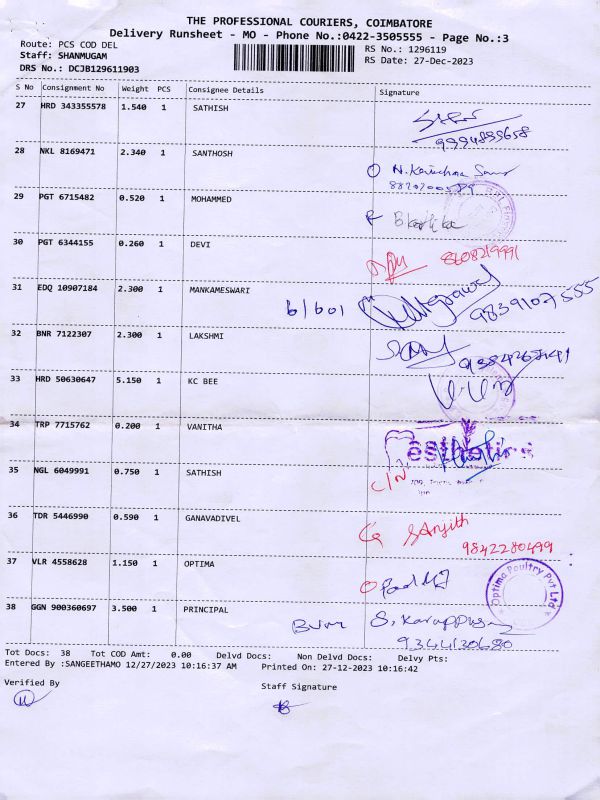 THE PROFESSIONAL COURIERS, COIMBATORE
Delivery Runsheet - MO - Phone No.:0422-3505555 - Page No.:3
Route: PCS COD DEL
RS No.: 1296119
Staff: SHANMUGAM
RS Date: 27-Dec-2023
DRS No.: DCJB129611903
S No Consignment No Weight PCS Consignee Details Signature
27 HRD 343355578 1.540 1 SATHISH
28 NKL 8169471 2.340 1 SANTHOSH
29 PGT 6715482 0.520 1 MOHAMMED
30 PGT 6344155 0.260 1 DEVI
8608219991
31 EDQ 10907184 2.300 1 MANKAMESWARI
b/601
9839107555
32 BNR 7122307 2.300 1 LAKSHMI
33 HRD 50630647 5.150 1 KC BEE
34 TRP 7715762 0.200 1 VANITHA
35 NGL 6049991 0.750 1 SATHISH
36 TDR 5446990 0.590 1 GANAVADIVEL
Sanjith
9842280499
37 VLR 4558628 1.150 1 OPTIMA
Optima Poultry Pvt Ltd
38 GGN 900360697 3.500 1 PRINCIPAL
9344130680
Tot Docs: 38 Tot COD Amt: 0.00 Delvd Docs: Non Delvd Docs: Delvy Pts:
Entered By :SANGEETHAMO 12/27/2023 10:16:37 AM Printed On: 27-12-2023 10:16:42
Verified By
Staff Signature